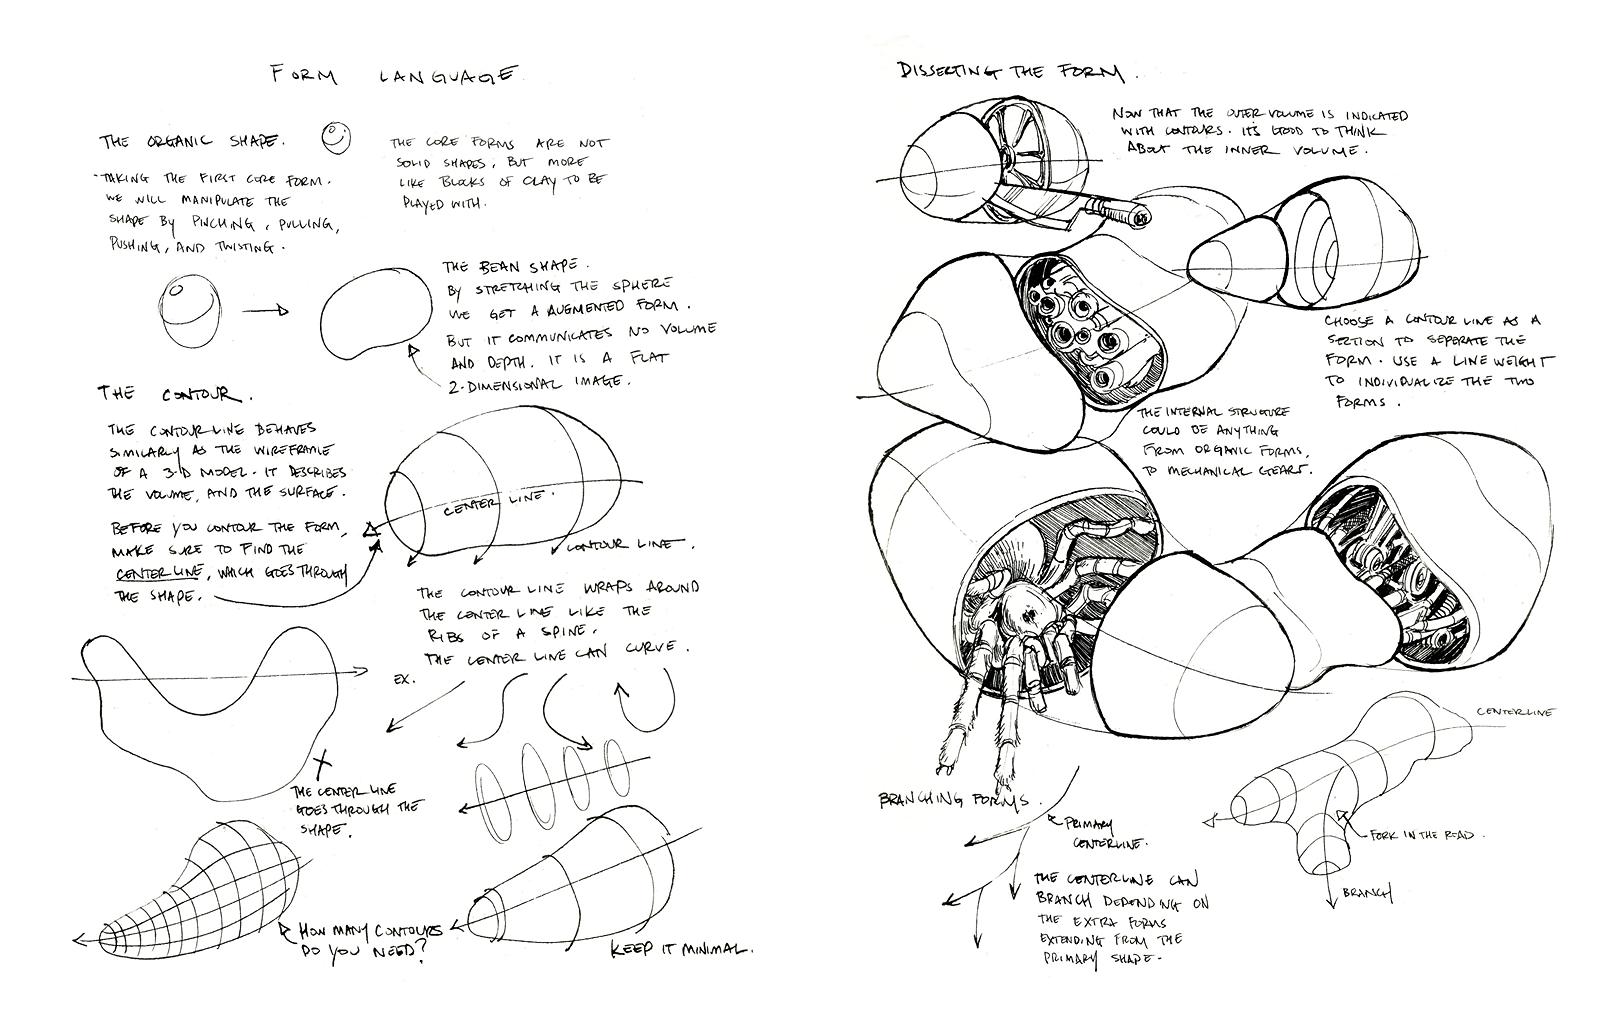 FORM LANGUAGE
THE ORGANIC SHAPE.
TAKING THE FIRST CORE FORM.
WE WILL MANIPULATE THE
SHAPE BY PINCHING, PULLING,
PUSHING, AND TWISTING.
THE CORE FORMS ARE NOT
SOLID SHAPES, BUT MORE
LIKE BLOCKS OF CLAY TO BE
PLAYED WITH.
THE BEAN SHAPE.
BY STRETCHING THE SPHERE
WE GET A AUGMENTED FORM.
BUT IT COMMUNICATES NO VOLUME
AND DEPTH. IT IS A FLAT
2-DIMENSIONAL IMAGE.
THE CONTOUR.
THE CONTOUR LINE BEHAVES
SIMILARLY AS THE WIREFRAME
OF A 3-D MODEL. IT DESCRIBES
THE VOLUME, AND THE SURFACE.
BEFORE YOU CONTOUR THE FORM,
MAKE SURE TO FIND THE
CENTERLINE, WHICH GOES THROUGH
THE SHAPE.
CENTER LINE.
CONTOUR LINE.
THE CONTOUR LINE WRAPS AROUND
THE CENTER LINE LIKE THE
RIBS OF A SPINE.
THE CENTER LINE CAN CURVE.
EX.
THE CENTER LINE
GOES THROUGH THE
SHAPE.
HOW MANY CONTOURS
DO YOU NEED?
KEEP IT MINIMAL.
DISSECTING THE FORM.
NOW THAT THE OUTER VOLUME IS INDICATED
WITH CONTOURS. ITS GOOD TO THINK
ABOUT THE INNER VOLUME.
CHOOSE A CONTOUR LINE AS A
SECTION TO SEPERATE THE
FORM. USE A LINE WEIGHT
TO INDIVIDUALIZE THE TWO
FORMS.
THE INTERNAL STRUCTURE
COULD BE ANYTHING
FROM ORGANIC FORMS,
TO MECHANICAL GEARS.
BRANCHING FORMS.
PRIMARY
CENTERLINE.
THE CENTERLINE CAN
BRANCH DEPENDING ON
THE EXTRA FORMS
EXTENDING FROM THE
PRIMARY SHAPE.
CENTERLINE
FORK IN THE ROAD.
BRANCH